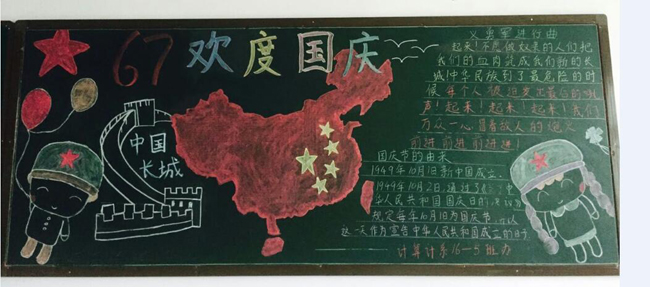 67欢度国庆
中国
长城
义勇军进行曲
起来!不愿做奴隶的人们把
我们的血肉筑成我们新的长
城中华民族到了最危险的时
候 每个人被迫发出最后的吼
声!起来!起来!起来!我们
万众一心冒着敌人的炮火
前进 前进 前进进!
国庆节的由来
1949年10月1日新中国成立
1949年10月2日,通过
华人民共和国国庆日的
规定每年10月1日为国庆节
这一天作为宣告中华人民共和国成立的日子
计算计系16-5班办